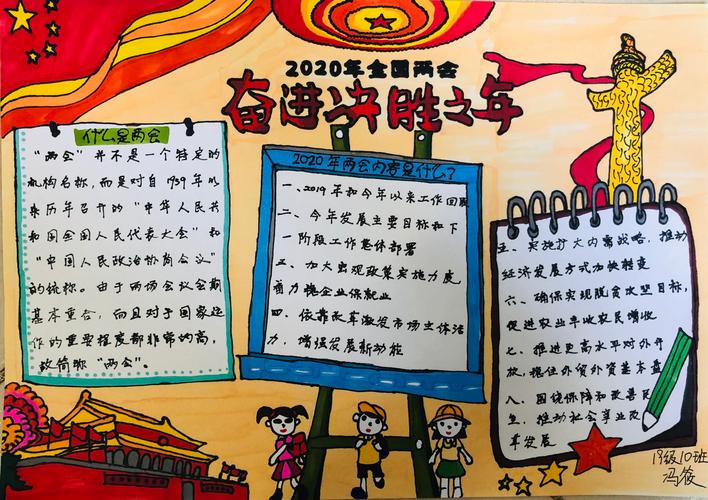 2020年全国两会
奋进决胜之年
什么是两会
“两会”并不是一个特定的
机构名称,而是对自1939年以
来历年召开的“中华人民共
和国全国人民代表大会”和
“中国人民政治协商会议”
的统称。由于两场会议会期
基本重合,而且对于国家运
作的重要程度都非常的高,
故简称“两会”。
2020年两会内容是什么?
一、2019年和今年以来工作回顾
二、今年发展主要目标和下
一阶段工作整体部署
三、加大宏观政策实施力度
着力稳企业保就业
四、依靠改革激发市场主体活
力,增强发展新动能
五、实施扩大内需战略,推动
经济发展方式加快转变
六、确保实现脱贫攻坚目标,
促进农业丰收农民增收
七、推进更高水平对外开
放,稳住外贸外资基本盘
八、围绕保障和改善民
生,推动社会事业改
革发展
19级10班
冯